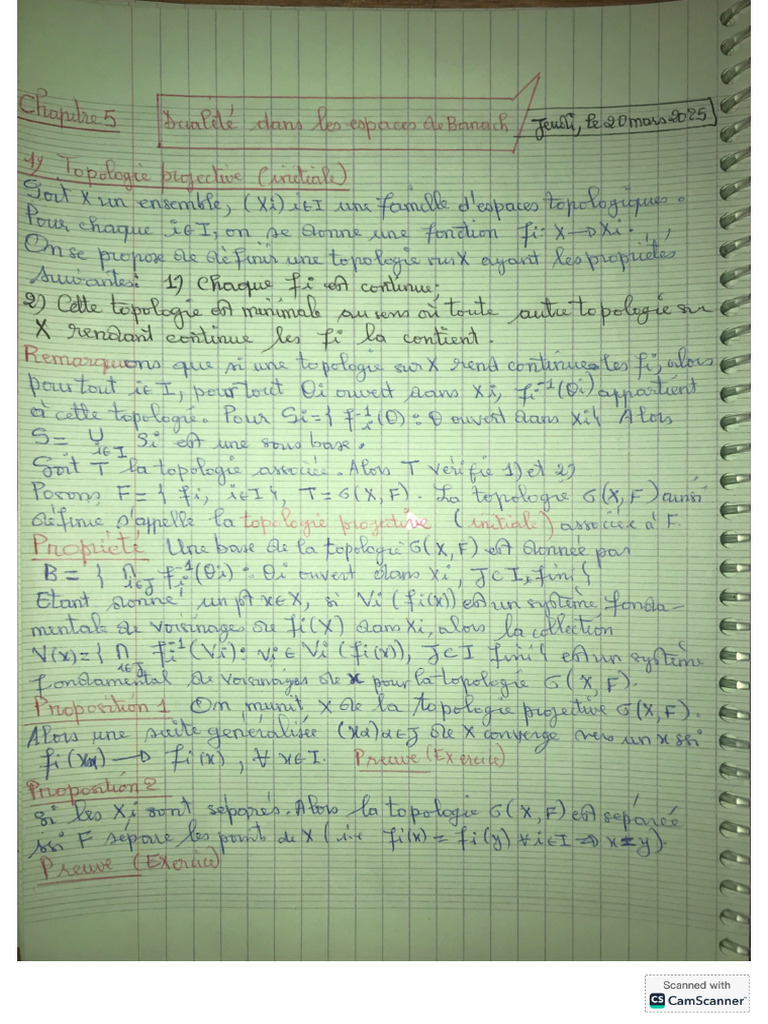 Chapitre 5
Dualité dans les espaces de Banach
Jeudi, le 20 mars 2025
1) Topologie projective (initiale)
Soit X un ensemble, (Xi)i∈I une famille d'espaces topologiques.
Pour chaque i∈I, on se donne une fonction fi: X→Xi.
On se propose de définir une topologie sur X ayant les propriétés
suivantes: 1) Chaque fi est continue;
2) Cette topologie est minimale au sens où toute autre topologie sur
X rendant continue les fi la contient.
Remarquons que si une topologie sur X rend continues les fi, alors
pour tout i∈I, pour tout θi ouvert dans Xi, fi⁻¹(θi) appartient
à cette topologie. Pour Si={ fi⁻¹(θ) : θ ouvert dans Xi} Alors
S= ∪i∈I Si est une sous base.
Soit T la topologie associée. Alors T vérifie 1) et 2)
Posons F={ fi, i∈I}, T=σ(X,F). La topologie σ(X,F) ainsi
définie s'appelle la topologie projective (initiale) associée à F.
Propriété Une base de la topologie σ(X,F) est donnée par
B = { ∩i∈J fi⁻¹(θi) : θi ouvert dans Xi, J⊂I, fini}
Etant donné un pt x∈X, si Vi(fi(x)) est un système fonda-
mentale de voisinages de fi(X) dans Xi, alors la collection
V(x)={ ∩i∈J fi⁻¹(Vi): vi∈Vi(fi(x)), J⊂I fini} est un système
fondamental de voisinages de x pour la topologie σ(X,F).
Proposition 1 On munit X de la topologie projective σ(X,F).
Alors une suite généralisée (xα)α∈J de X converge vers un x ssi
fi(xα) → fi(x), ∀ x∈I. Preuve (Exercice)
Proposition 2
si les Xi sont séparés. Alors la topologie σ(X,F) est séparée
ssi F sépare les point de X (i.e fi(x) = fi(y) ∀i∈I ⇒ x=y).
Preuve (Exercice)
Scanned with
CS CamScanner